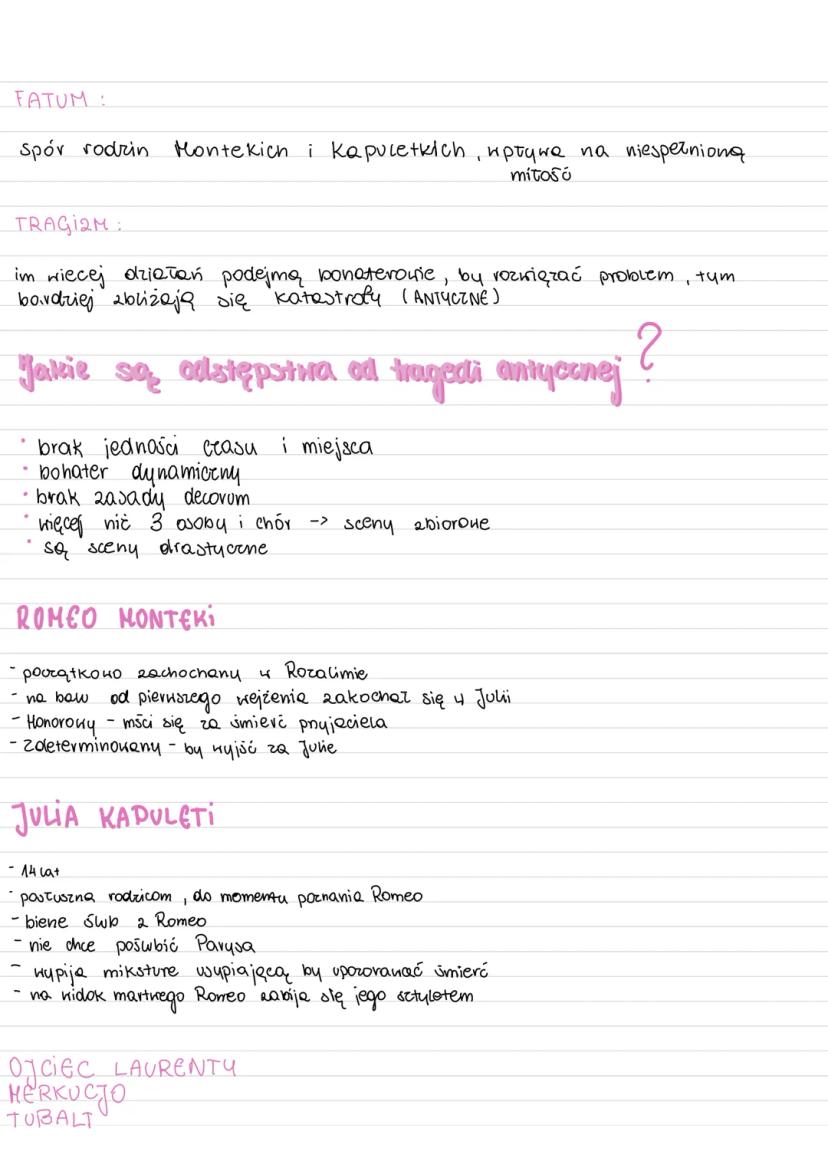 FATUM :
spór rodzin Montekich i Kapuletkich, wpływa na niespełnioną
miłość
TRAGIZM :
im więcej działań podejmą bohaterowie, by rozwiązać problem, tym
bardziej zbliżają się katastrofy (ANTYCZNE)
Jakie są odstępstwa od tragedi antycznej ?
• brak jedności czasu i miejsca
• bohater dynamiczny
• brak zasady decorum
• więcej niż 3 osoby i chór -> sceny zbiorowe
• są sceny drastyczne
ROMEO MONTEKi
- początkowo zachochany w Rozalimie
- na balu od pierwszego wejżenia zakochał się w Julii
- Honorowy - mści się za śmierć przyjaciela
- Zdeterminowany - by wyjść za Julie
JULiA KAPULETi
- 14 lat
- posłuszna rodzicom, do momentu poznania Romeo
- bierze ślub z Romeo
- nie chce poślubić Parysa
- wypija miksture usypiającą by upozorowanać śmierć
- na widok martwego Romeo zabija się jego sztyletem
OJCiEC LAURENTY
MERKUCJO
TUBALT